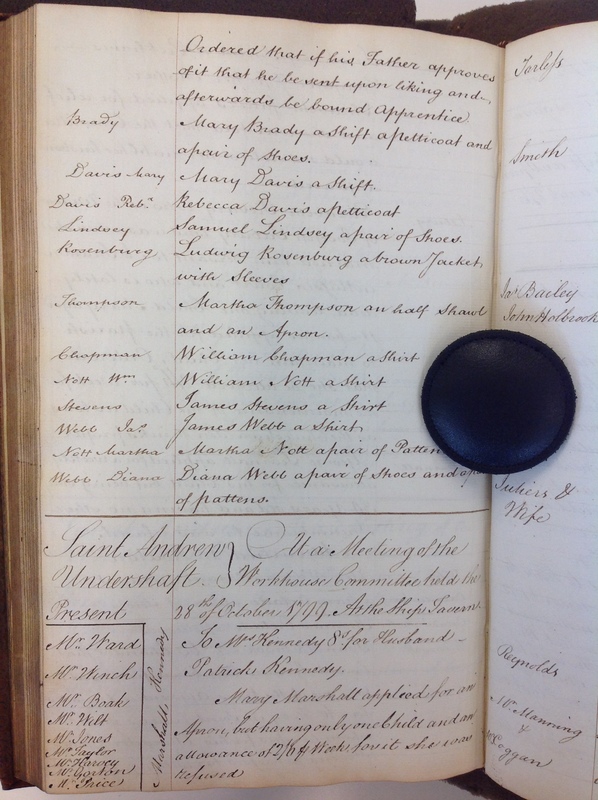 Ordered that if his Father approves
of it that he be sent upon liking and
afterwards be bound Apprentice
Brady Mary Brady a Shift a petticoat and
a pair of Shoes.
Davis Mary Mary Davis a Shift.
Davis Reb.a Rebecca Davis a petticoat
Lindsey Samuel Lindsey a pair of Shoes.
Rosenburg Ludwig Rosenburg a brown Jacket
with Sleeves
Thompson Martha Thompson an half Shawl
and an Apron.
Chapman William Chapman a Shirt
Nott Wm William Nott a Shirt
Stevens James Stevens a Shirt
Webb Jas James Webb a Shirt
Nott Martha Martha Nott a pair of Patten
Webb Diana Diana Webb a pair of Shoes and a pa
of pattens.
Saint Andrew } At a Meeting of the
Undershaft. Workhouse Committee held the
Present 28th of October 1799. At the Ships Tavern
Mr. Ward
Mr. Winch
Mr. Boak
Mr. Welt
Mr. Jones
Mr. Taylor
Mr. Harvey
Mr. Gorton
Mr. Price
Kennedy
To Mrs Kennedy 8s for Husband
Patrick Kennedy.
Marshall
Mary Marshall applied for an
Apron, but having only one Child and an
allowance of 2/6 p Week for it she was
refused
Torless
Smith
Jas Bailey
John Holbrook
Juliers &
Wife
Reynolds
Mr. Manning
&